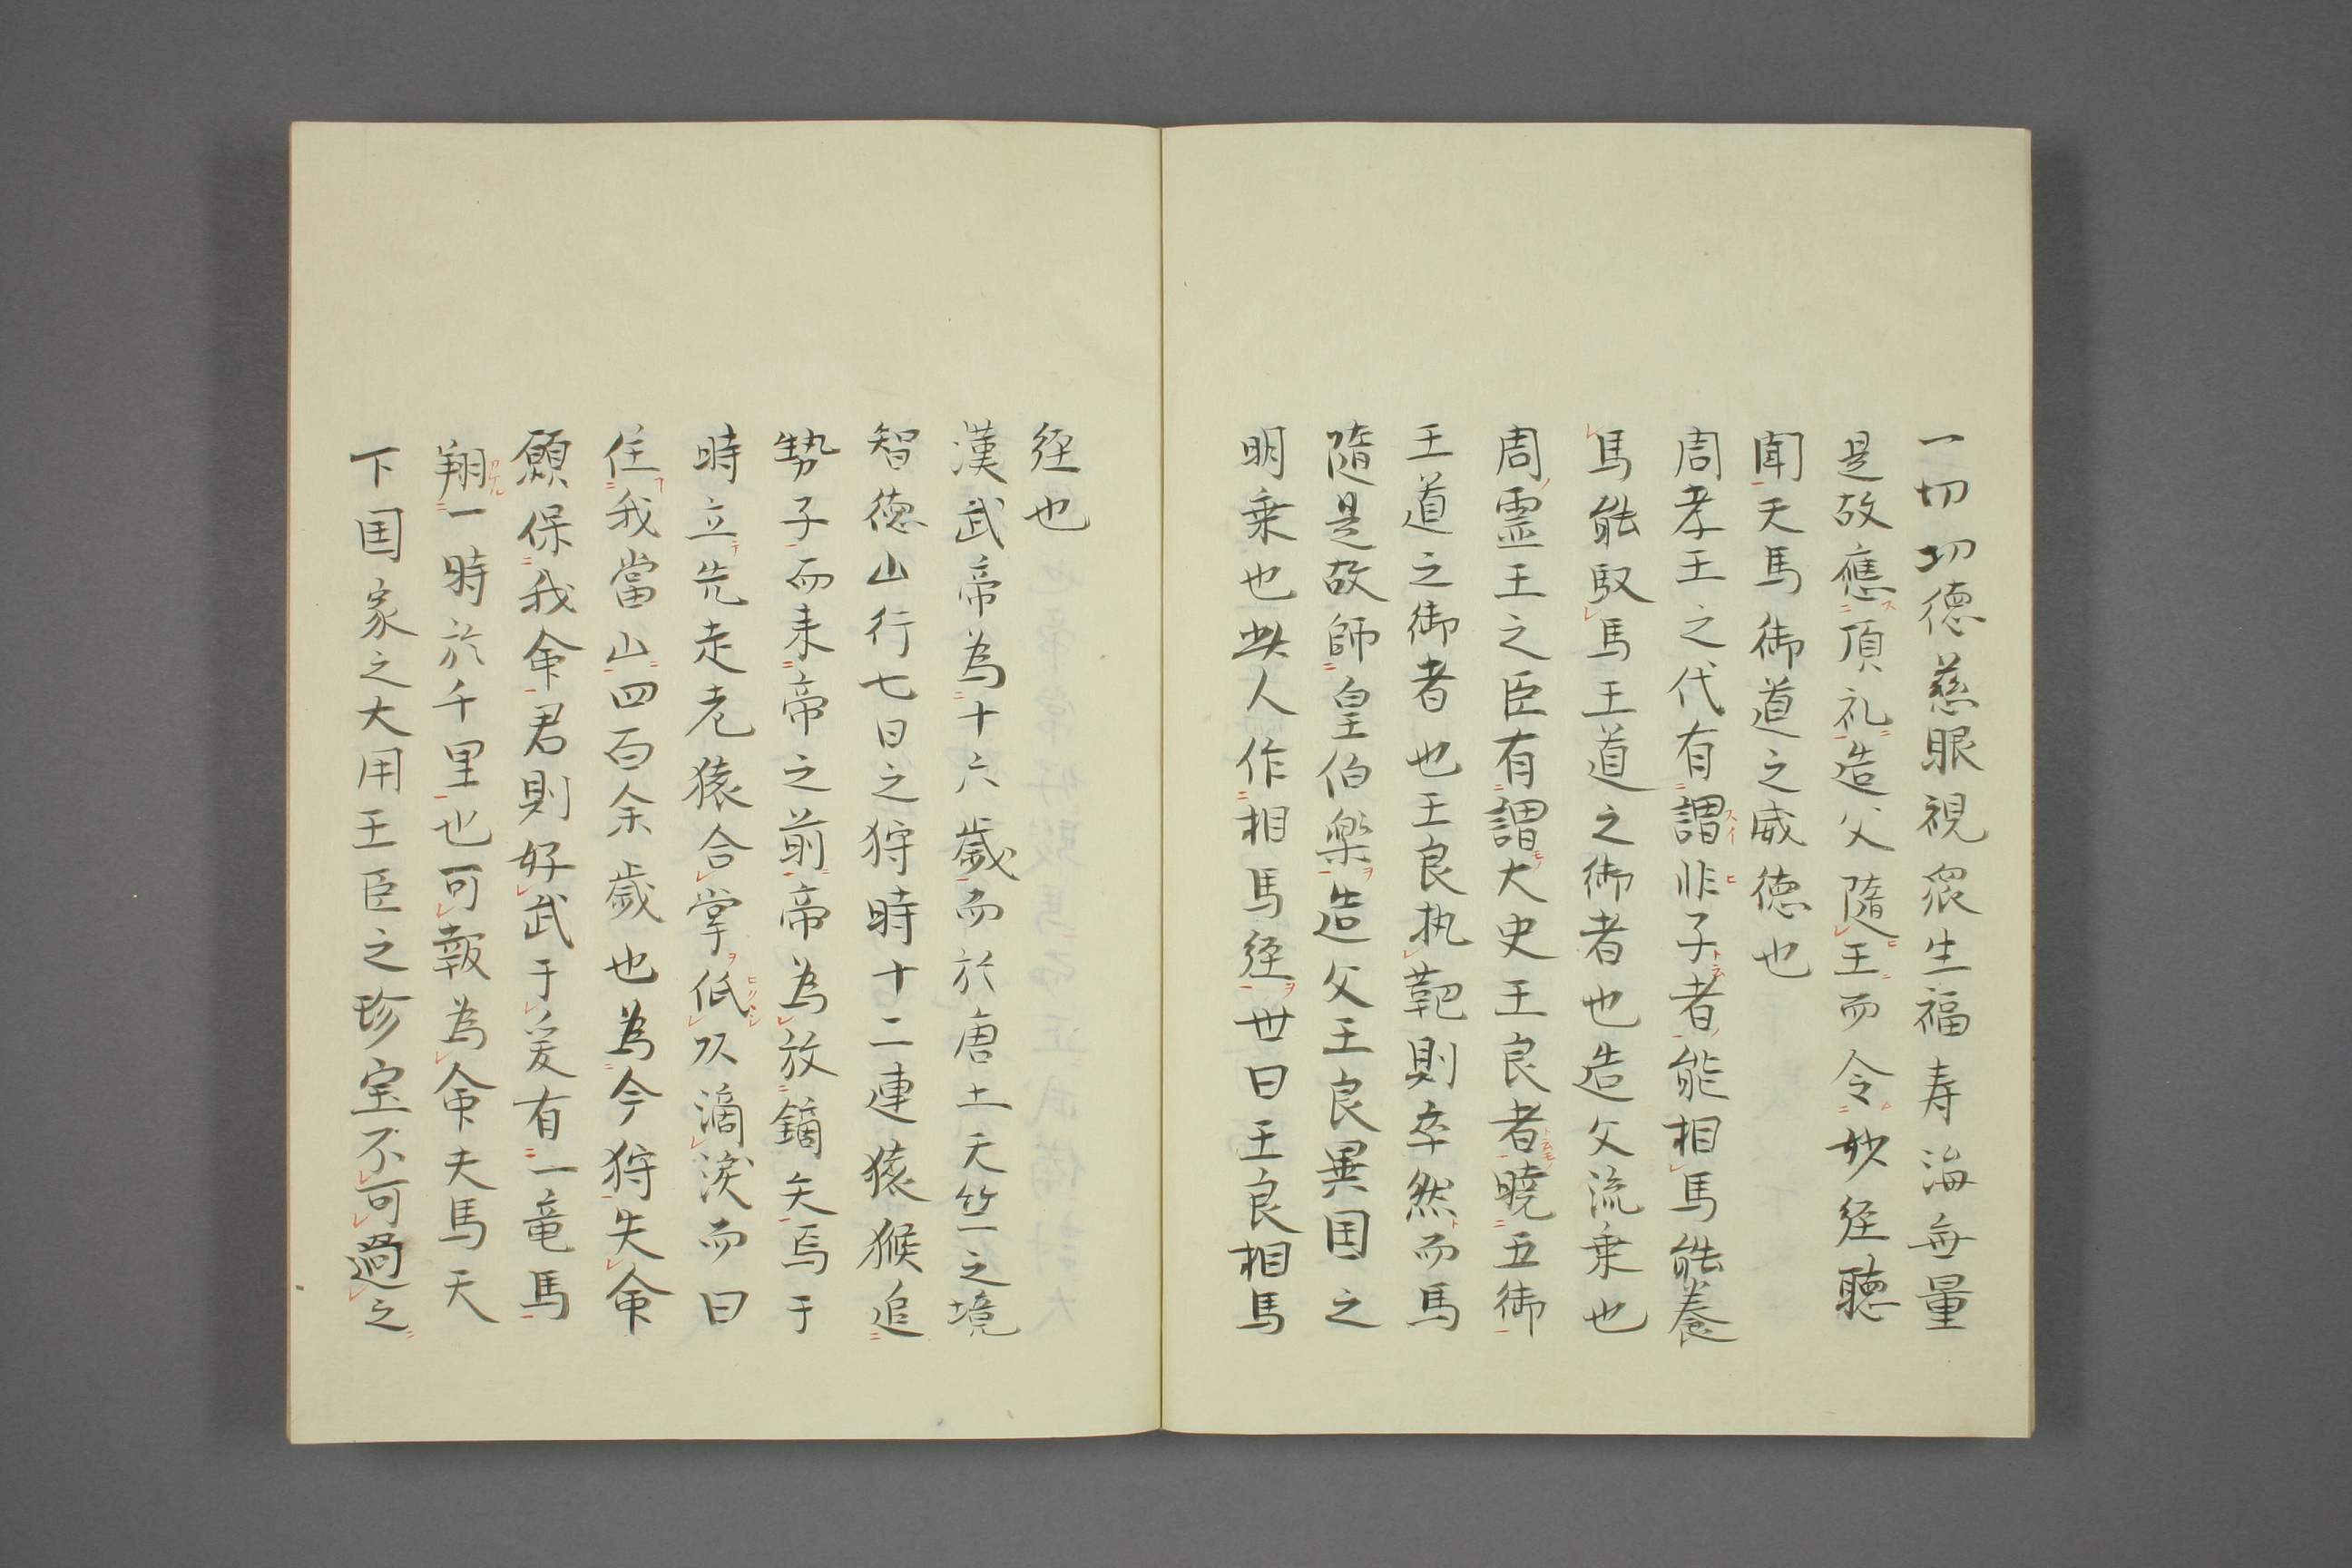 一切切德慈眼視衆生福寿海無量
是故應頂礼造父隨王而令妙経聴
聞天馬御道之威徳也
周孝王之代有謂非子者能相馬能養
馬能馭馬王道之御者也造父流乗也
周霊王之臣有謂大史王良者暁五御
王道之御者也王良执靶則卒然而馬
隨是故師皇伯楽造父王良異国之
明乗也此人作相馬経世曰王良相馬
経也
漢武帝為十六歳而於唐土天竺之境
智徳山行七日之狩時十二連猿猴追
勢子而来帝之前帝為放鏑矢焉于
時立先走老猿合掌低頭滴涙而曰
住我當山四百余歳也為今狩失命
願保我命君則好武于爰有一竜馬
翔一時於千里也可報為命夫馬天
下国家之大用王臣之珍宝不可過之